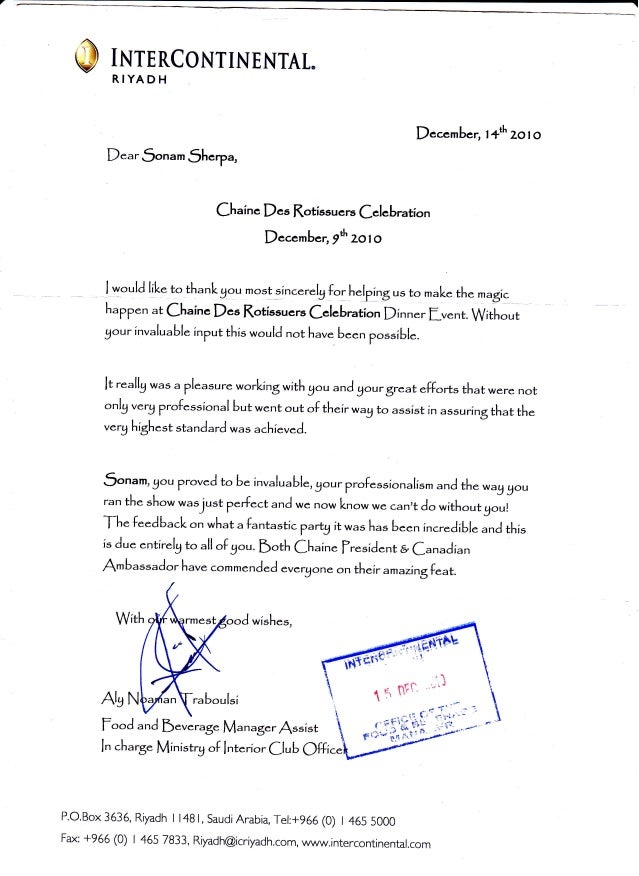 INTERCONTINENTAL.
RIYADH
December, 14th 2010
Dear Sonam Sherpa,
Chaine Des Rotissuers Celebration
December, 9th 2010
I would like to thank you most sincerely for helping us to make the magic
happen at Chaine Des Rotissuers Celebration Dinner Event. Without
your invaluable input this would not have been possible.
It really was a pleasure working with you and your great efforts that were not
only very professional but went out of their way to assist in assuring that the
very highest standard was achieved.
Sonam, you proved to be invaluable, your professionalism and the way you
ran the show was just perfect and we now know we can't do without you!
The feedback on what a fantastic party it was has been incredible and this
is due entirely to all of you. Both Chaine President & Canadian
Ambassador have commended everyone on their amazing feat.
With our warmest good wishes,
Aly Noaman Traboulsi
Food and Beverage Manager Assist
In charge Ministry of Interior Club Officer
INTERCONTINENTAL
15 DEC
OFFICE OF THE
FOOD & BEVERAGE
MANAGER
P.O.Box 3636, Riyadh 11481, Saudi Arabia, Tel:+966 (0) 1 465 5000
Fax: +966 (0) 1 465 7833, Riyadh@icriyadh.com, www.intercontinental.com